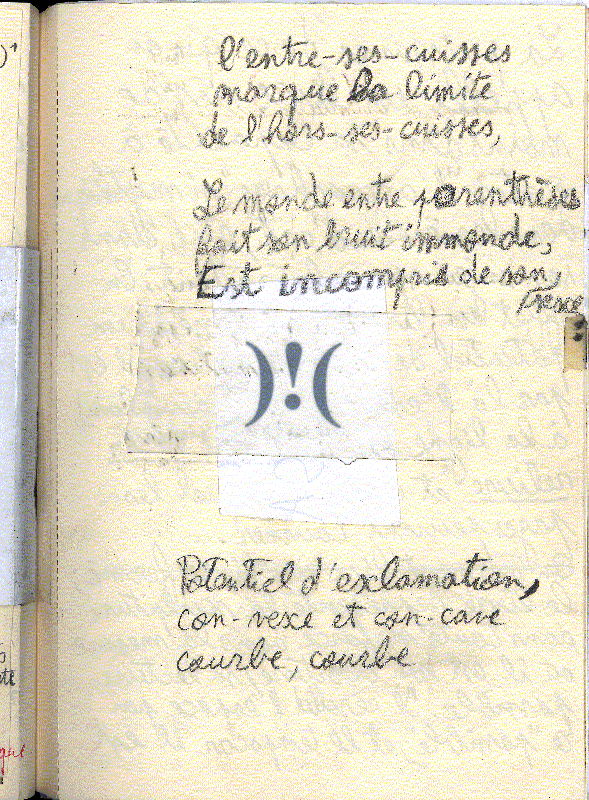 l'entre-ses-cuisses
marque la limite
de l'hors-ses-cuisses,
Le monde entre parenthèses
fait son bruit immonde,
Est incompris de son,
)!(
Potentiel d'exclamation,
con-vexe et con-cave
courbe, courbe